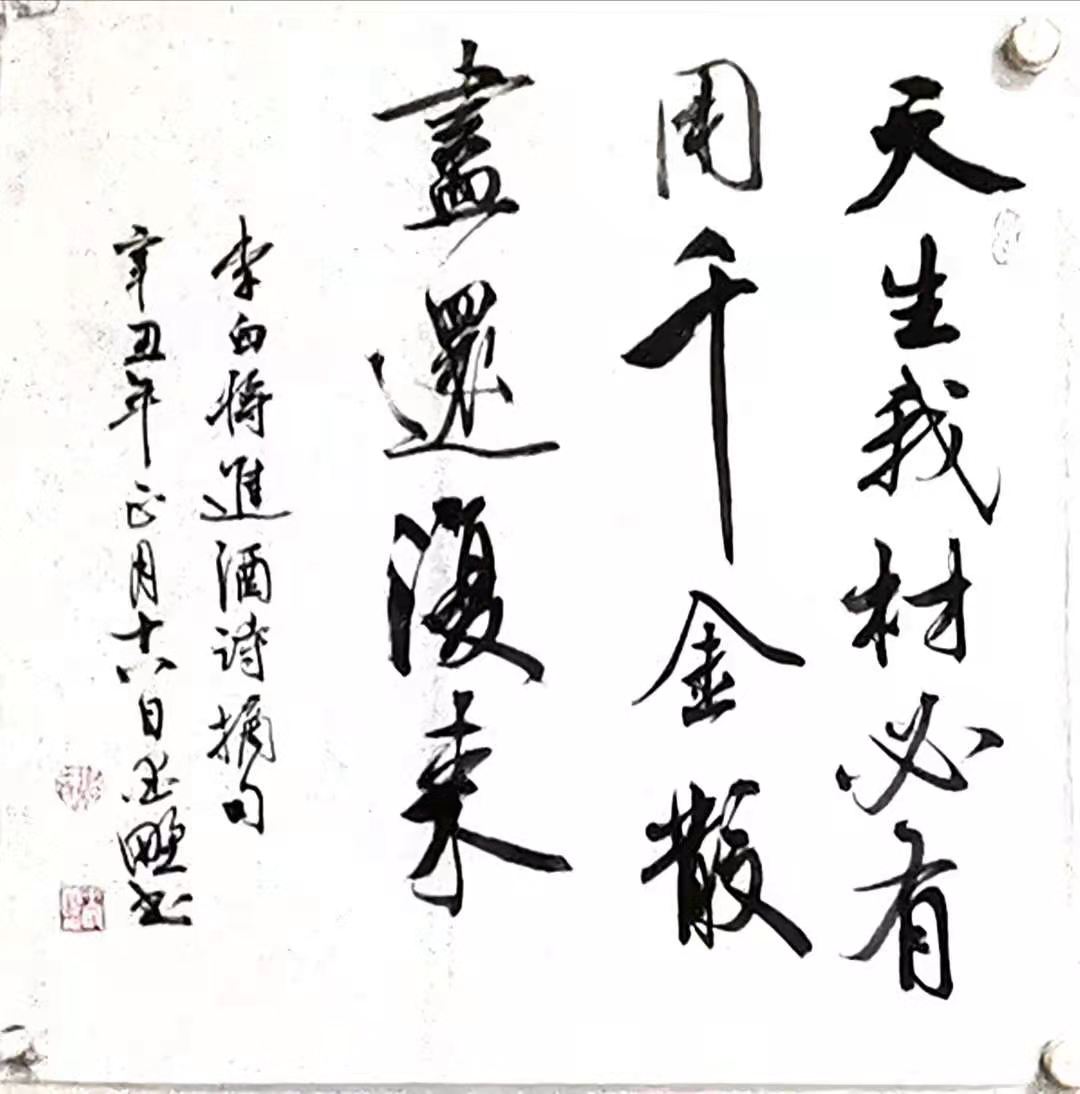 天生我材必有
用千金散
盡還復来
李白将進酒诗摘句
辛丑年正月十八日
书